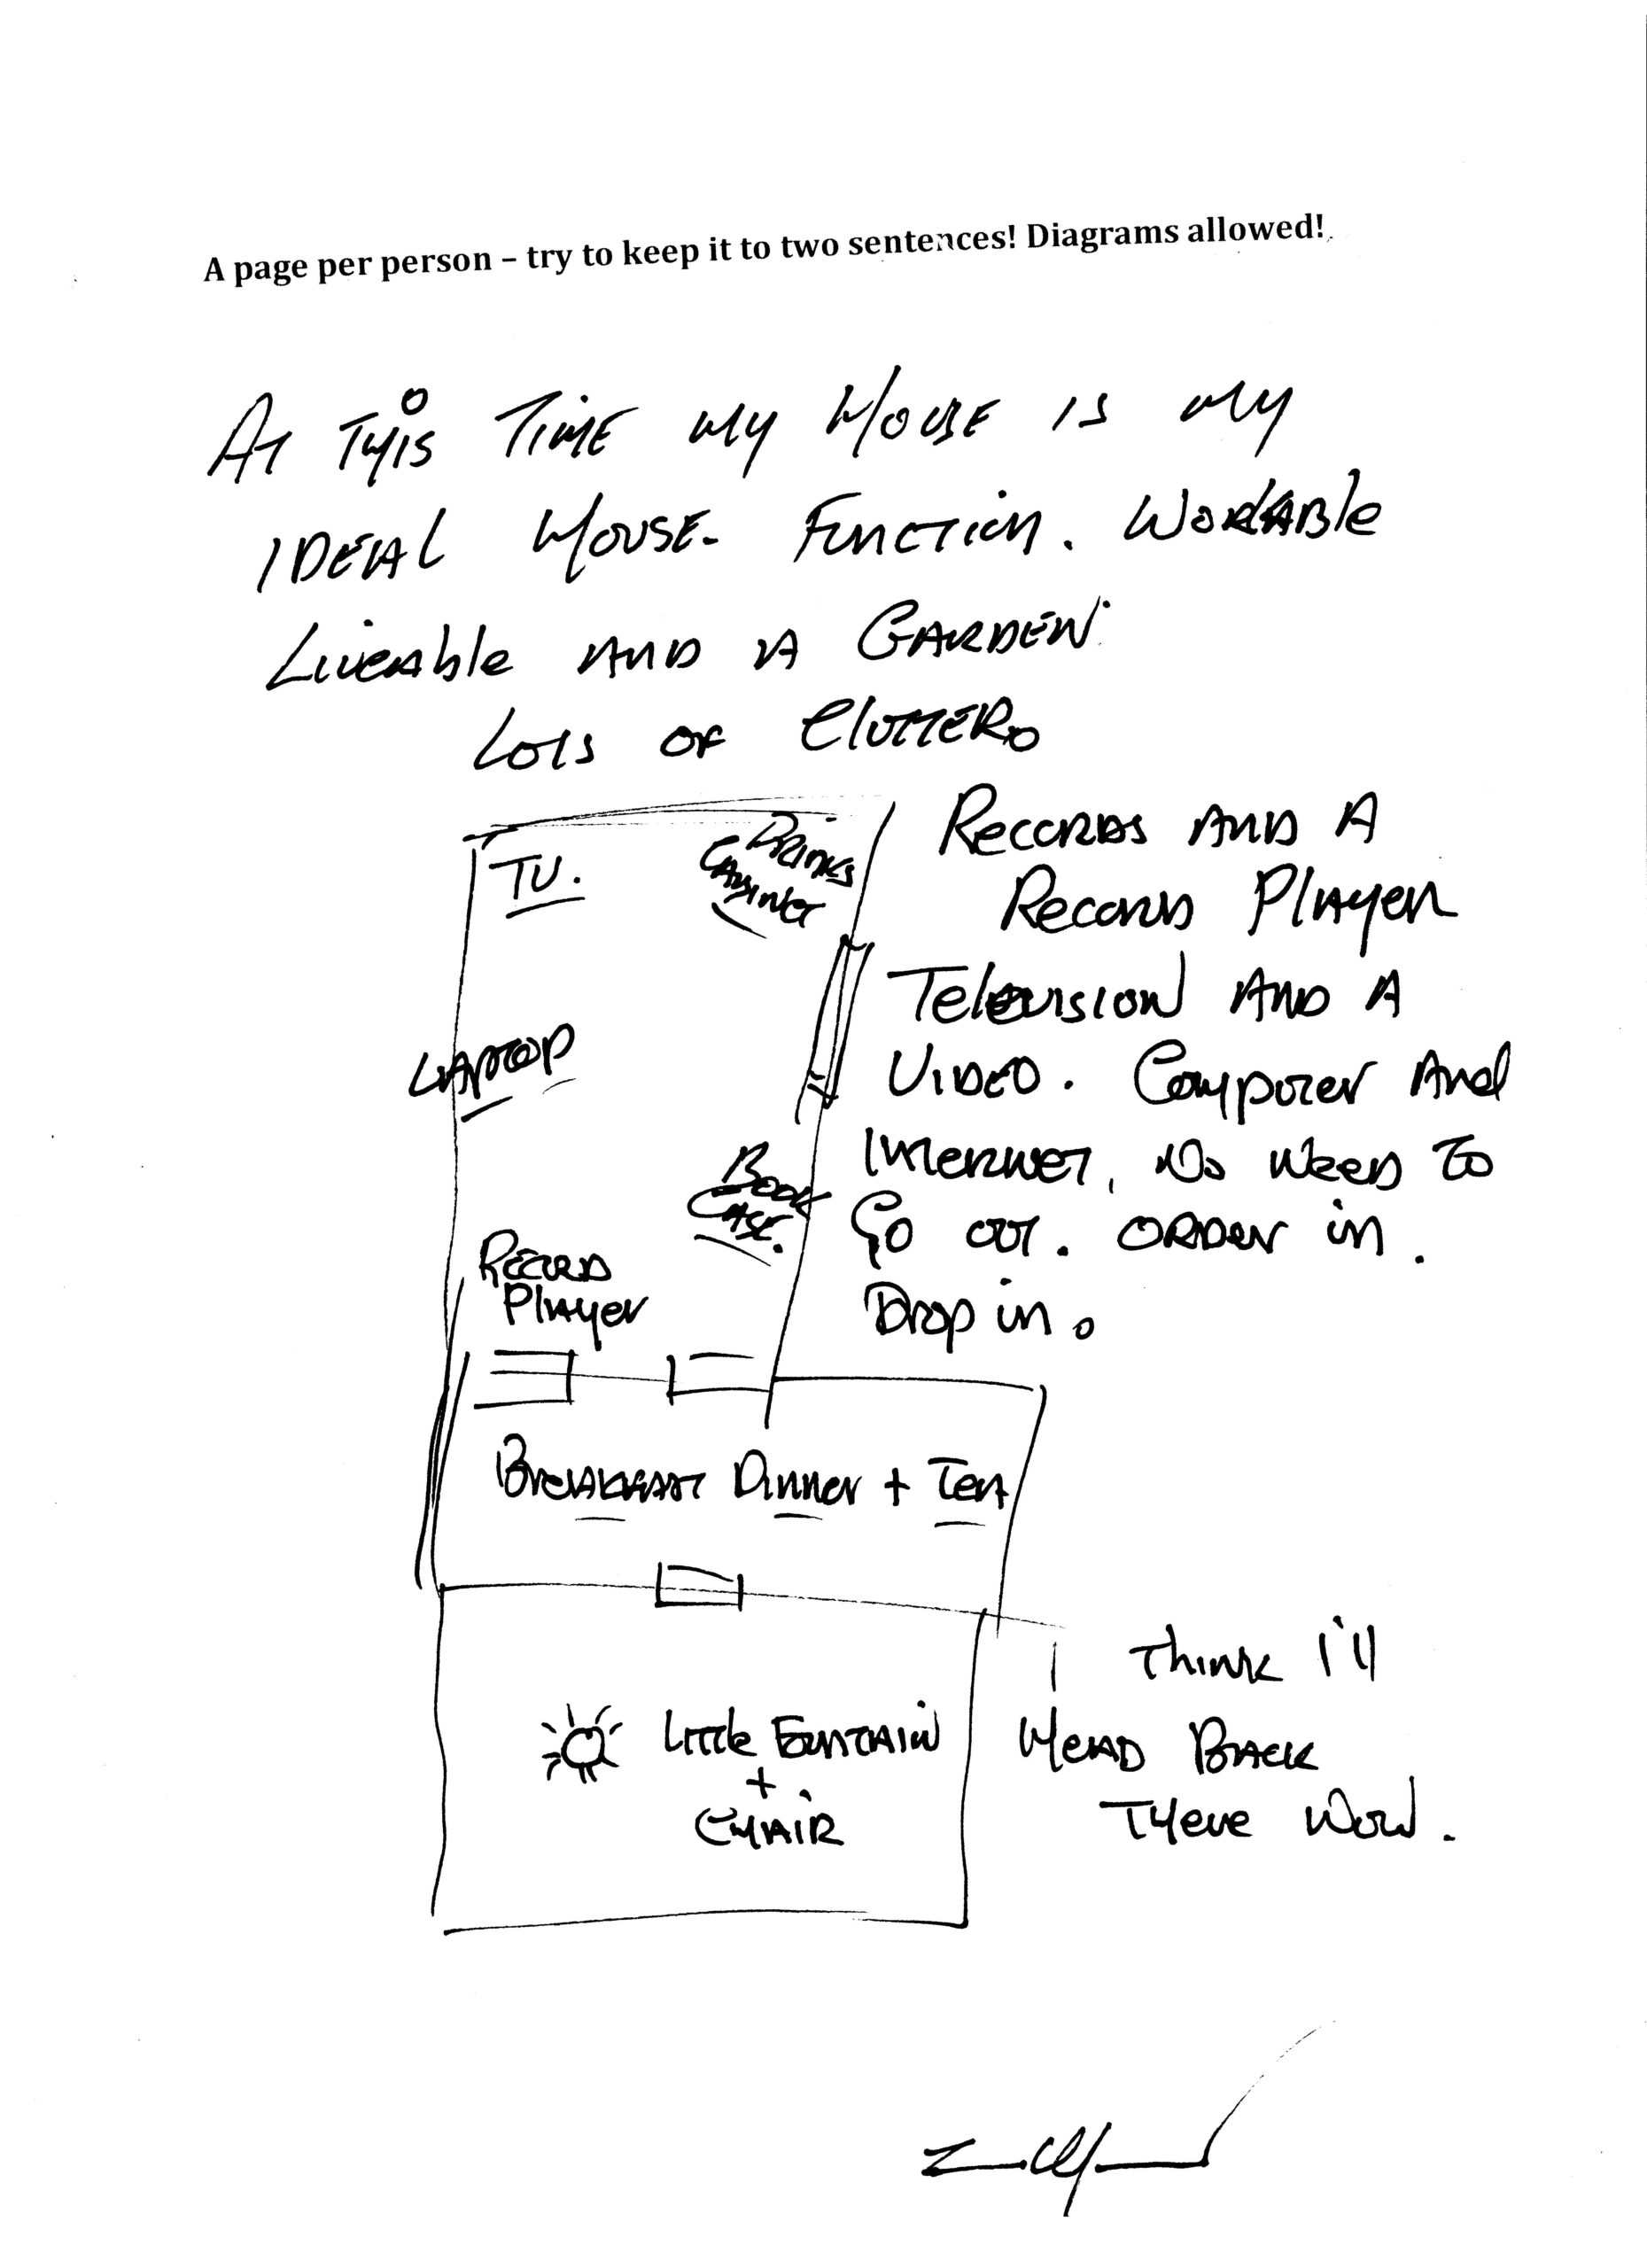 A page per person – try to keep it to two sentences! Diagrams allowed!
At This Time my House is my
IDEAL House. Function. Workable
Liveable AND A GARDEN.
Lots of Clutter.
Records AND A
Record Player
Television AND A
VIDEO. Computer And
Internet, No Need To
Go out. Order in.
Drop in.
TV.
Drinks
Cabinet
LAPTOP
Book
Case.
Record
Player
Breakfast Dinner + Tea
Little Fountain
+
CHAIR
Think I'll
Head Back
There Now.